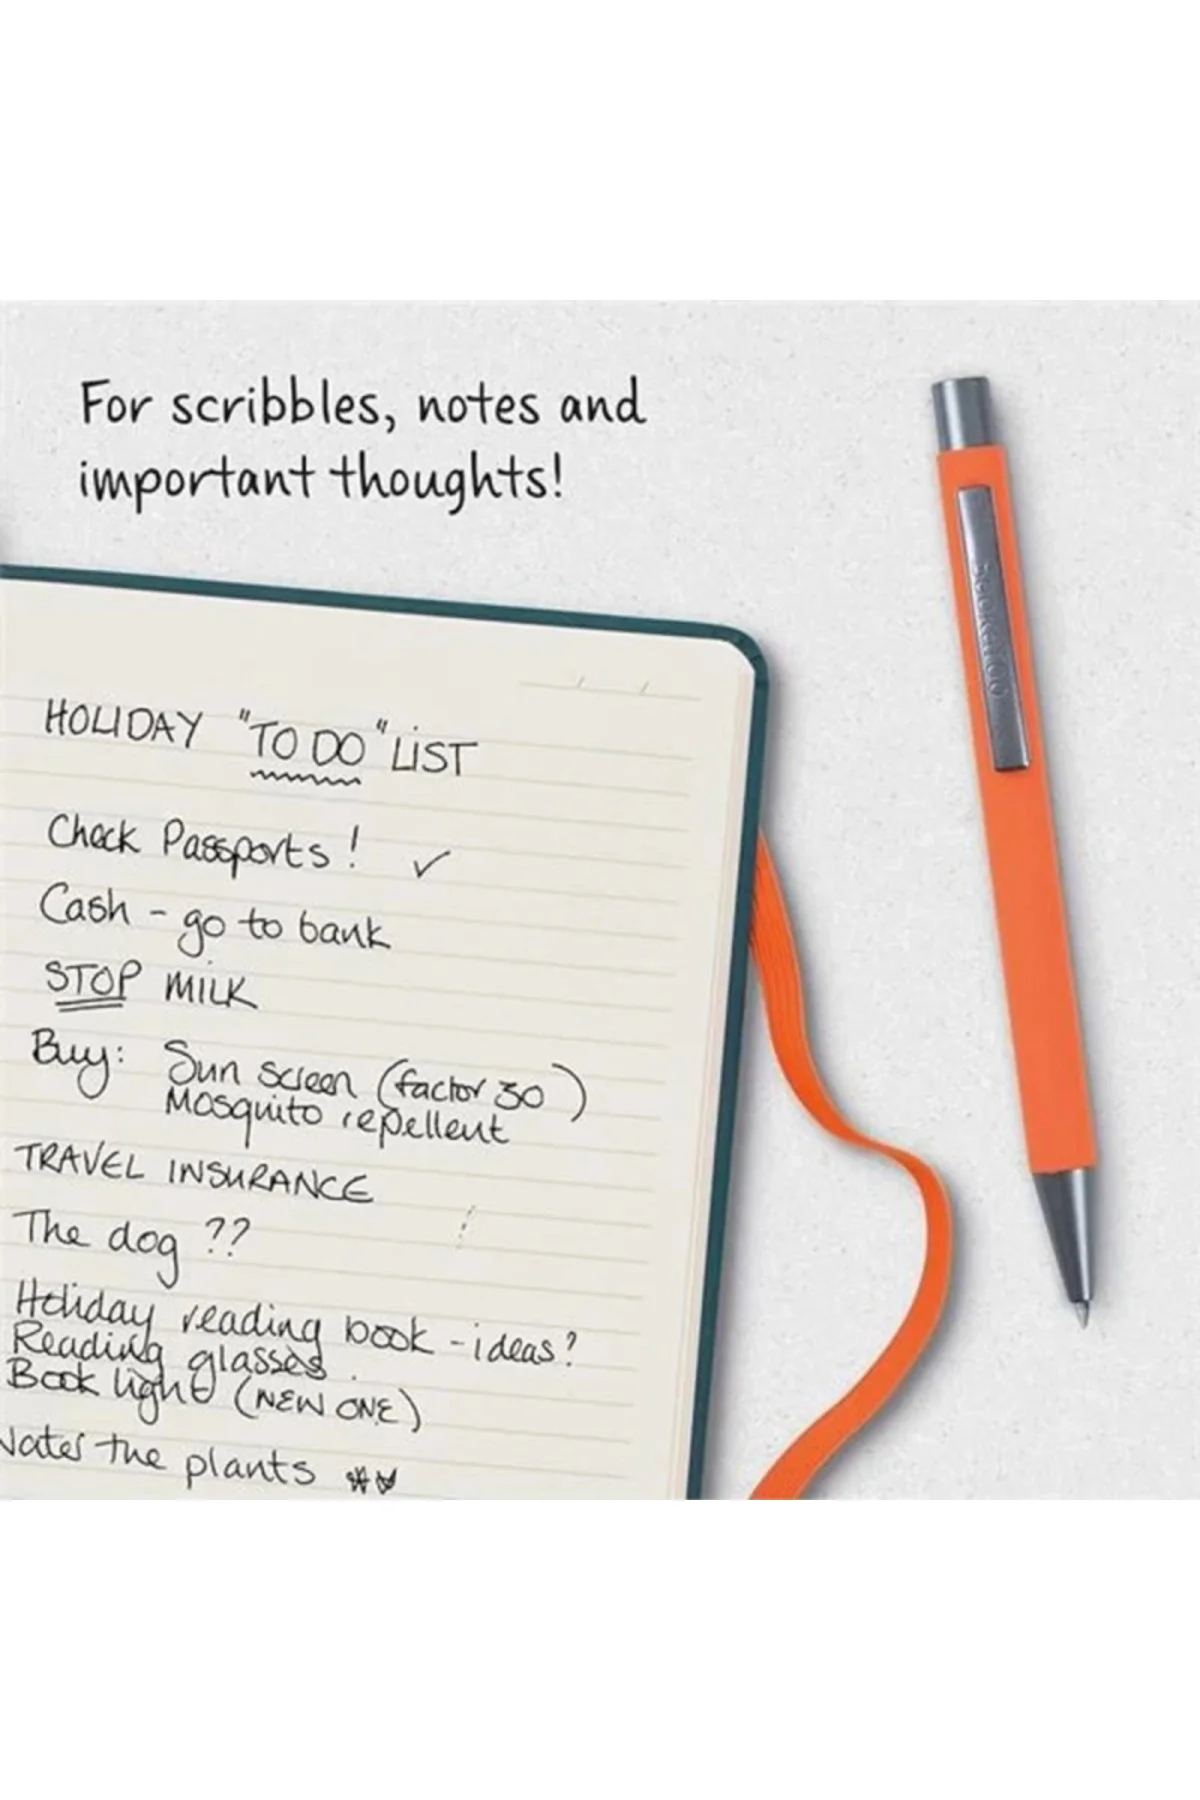 For scribbles, notes and
important thoughts!
HOLIDAY "TO DO" LIST
Check Passports! ✓
Cash - go to bank
STOP MILK
Buy: Sun screen (factor 30)
Mosquito repellent
TRAVEL INSURANCE
The dog ??
Holiday reading book - ideas?
Reading glasses
Book light (NEW ONE)
Water the plants